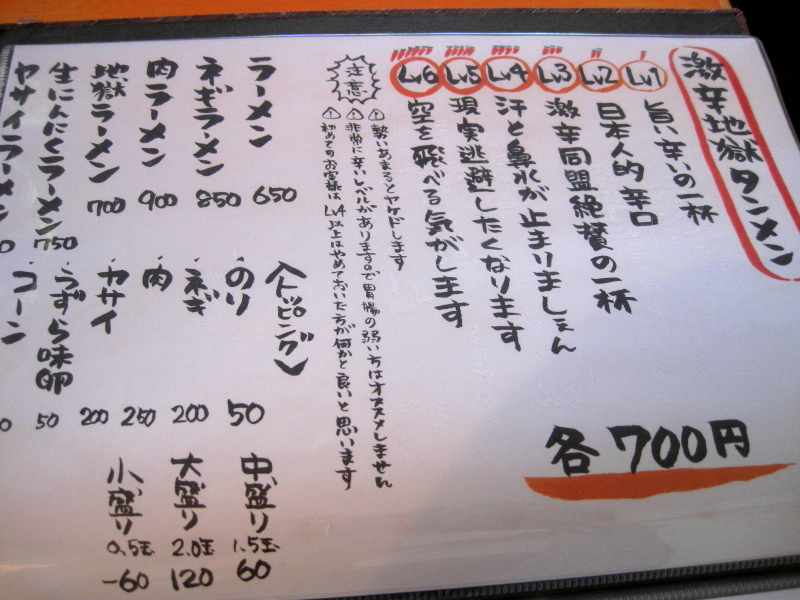 激辛地獄タンメン
Lv1 旨い辛いの一杯
Lv2 日本人的辛口
Lv3 激辛同盟絶賛の一杯
Lv4 汗と鼻水が止まりましぇん
Lv5 現実逃避したくなります
Lv6 空を飛べる気がします
各700円
注意
勢いあまるとヤケドします
非常に辛いレベルがありますので胃腸の弱い方はオススメしません
初めてのお客様はLv4以上はやめておいた方が何かと良いと思います
ラーメン 650
ネギラーメン 850
肉ラーメン 900
地獄ラーメン 700
生にんにくラーメン 750
ヤサイラーメン
〈トッピング〉
のり 50
ネギ 200
肉 250
ヤサイ 200
うずら味卵 50
コーン
中盛り 1.5玉 60
大盛り 2.0玉 120
小盛り 0.5玉 -60